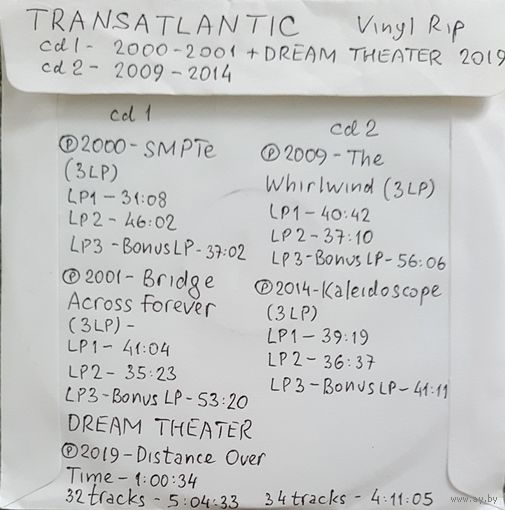 TRANSATLANTIC Vinyl Rip
cd1- 2000-2001 + DREAM THEATER 2019
cd2- 2009-2014
cd 1
℗2000-SMPTe
(3LP)
LP1-31:08
LP2-46:02
LP3-Bonus LP-37:02
℗2001-Bridge
Across Forever
(3LP)-
LP1-41:04
LP2-35:23
LP3-Bonus LP-53:20
DREAM THEATER
℗2019-Distance Over
Time-1:00:34
32 tracks-5:04:33
cd 2
℗2009-The
Whirlwind (3LP)
LP1-40:42
LP2-37:10
LP3-Bonus LP-56:06
℗2014-Kaleidoscope
(3LP)
LP1-39:19
LP2-36:37
LP3-Bonus LP-41:11
34 tracks-4:11:05
www.ay.by